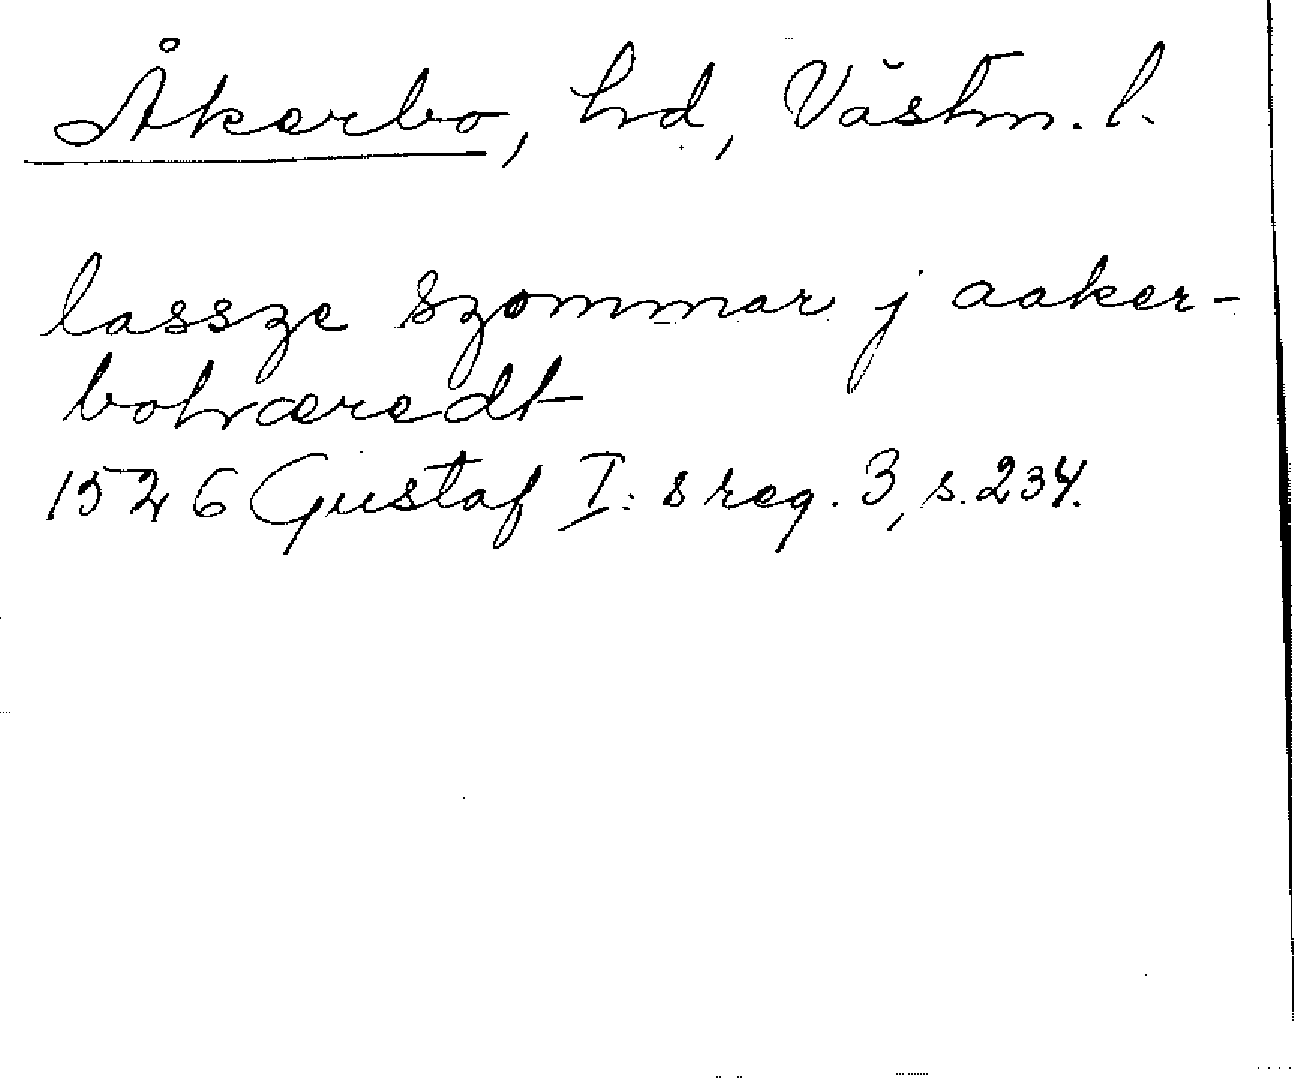 Åkerbo, hd, Västm. l.
lassze szommar j aaker-
bohæredt
1526 Gustaf I:s reg. 3, s. 234.